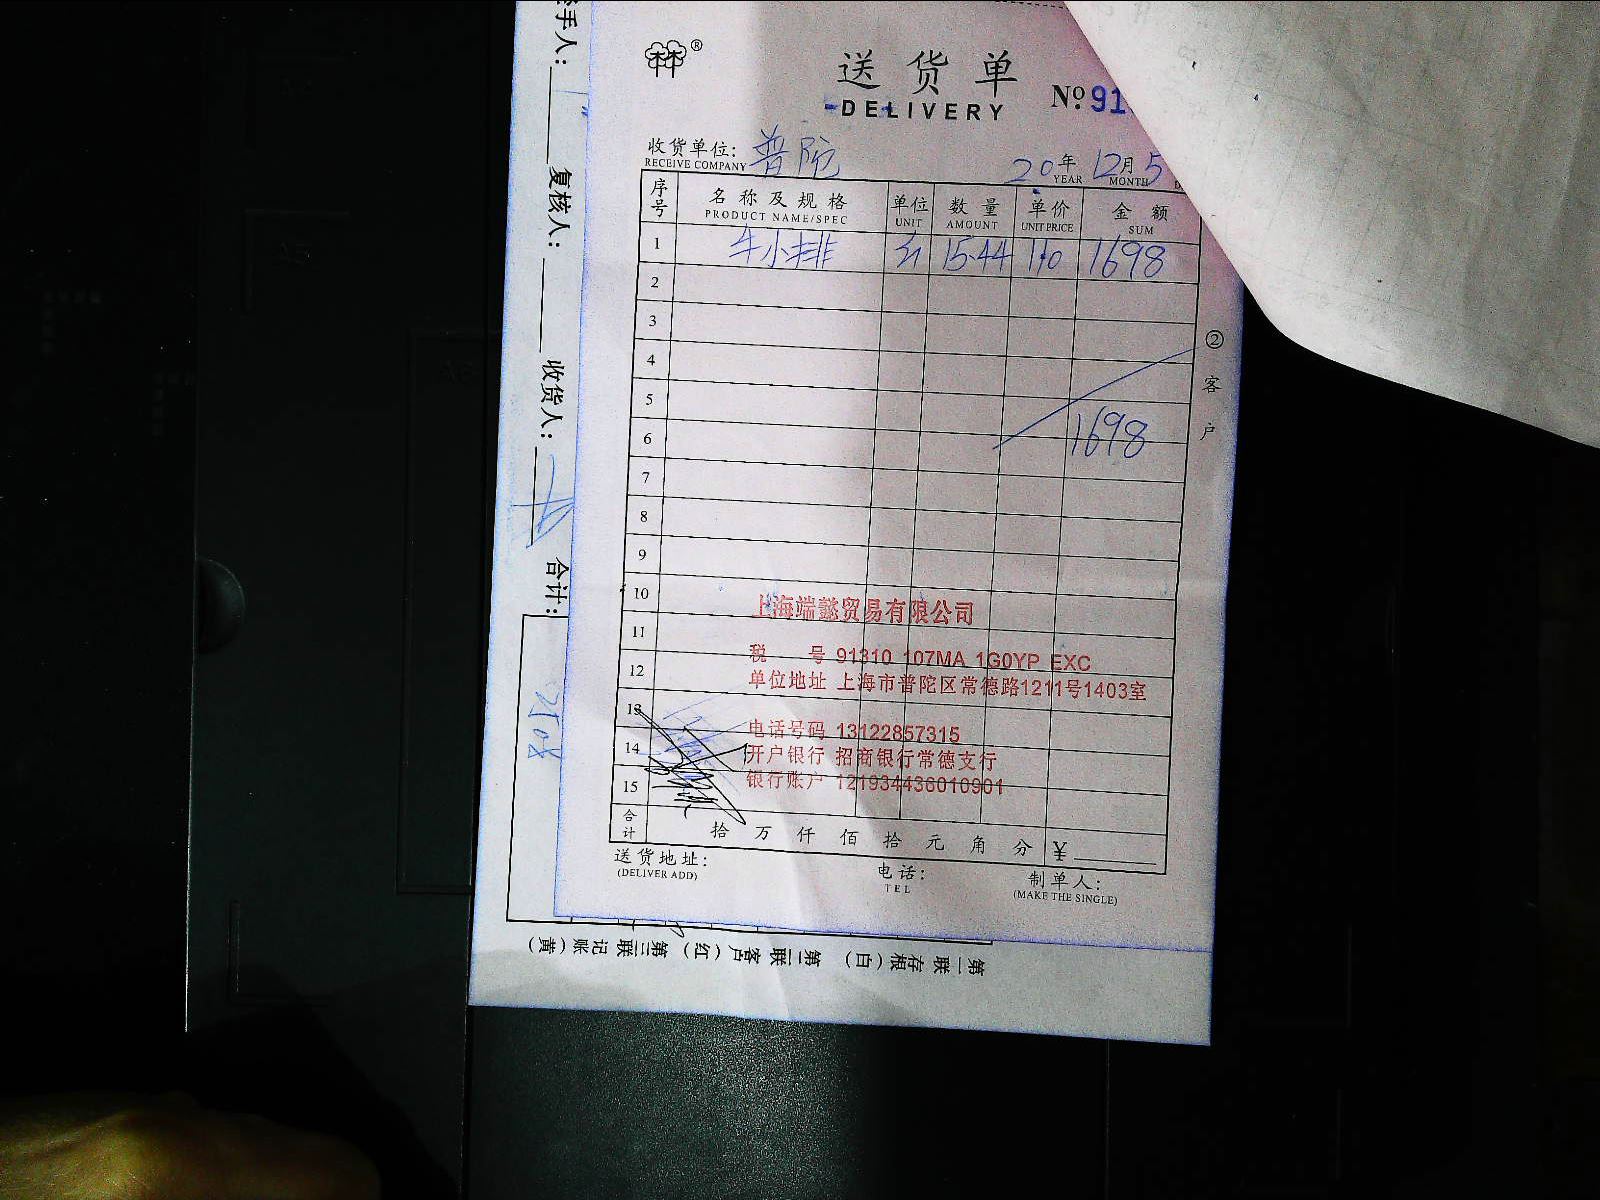 送货单
DELIVERY
№ 91
收货单位: 普陀
RECEIVE COMPANY
20年 12月 5
YEAR MONTH
序号 名称及规格 单位 数量 单价 金额
PRODUCT NAME/SPEC UNIT AMOUNT UNIT PRICE SUM
1 牛小排 15.44 110 1698
2
3
4
5
6 1698
7
8
9
10
11
12
13
14
15
上海端懿贸易有限公司
税 号 91310 107MA 1G0YP EXC
单位地址 上海市普陀区常德路1211号1403室
电话号码 13122857315
开户银行 招商银行常德支行
银行账户 121934436010901
合计 拾 万 仟 佰 拾 元 角 分 ¥
送货地址:
(DELIVER ADD)
电话:
TEL
制单人:
(MAKE THE SINGLE)
② 客户
手人:
复核人:
收货人:
合计:
第一联 存根(白) 第二联 客户(红) 第三联 记账(黄)